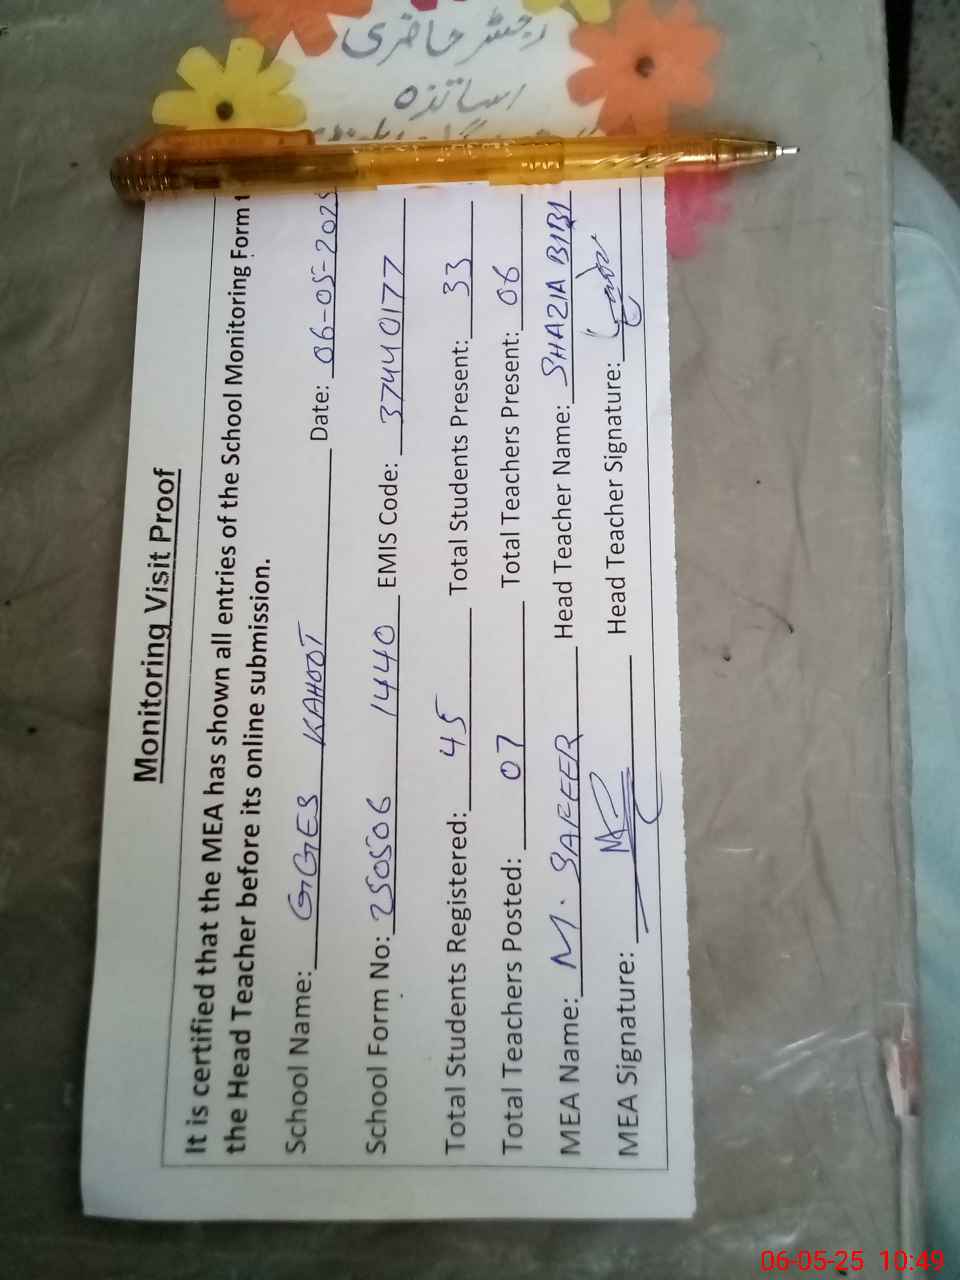 رجسٹر حاضری
اساتذہ
Monitoring Visit Proof
It is certified that the MEA has shown all entries of the School Monitoring Form t
the Head Teacher before its online submission.
School Name: GGES KAHOOT Date: 06-05-2025
School Form No: 250506 1440 EMIS Code: 37440177
Total Students Registered: 45 Total Students Present: 33
Total Teachers Posted: 07 Total Teachers Present: 06
MEA Name: M. SAFEER Head Teacher Name: SHAZIA BIBI
MEA Signature: Head Teacher Signature:
06-05-25 10:49